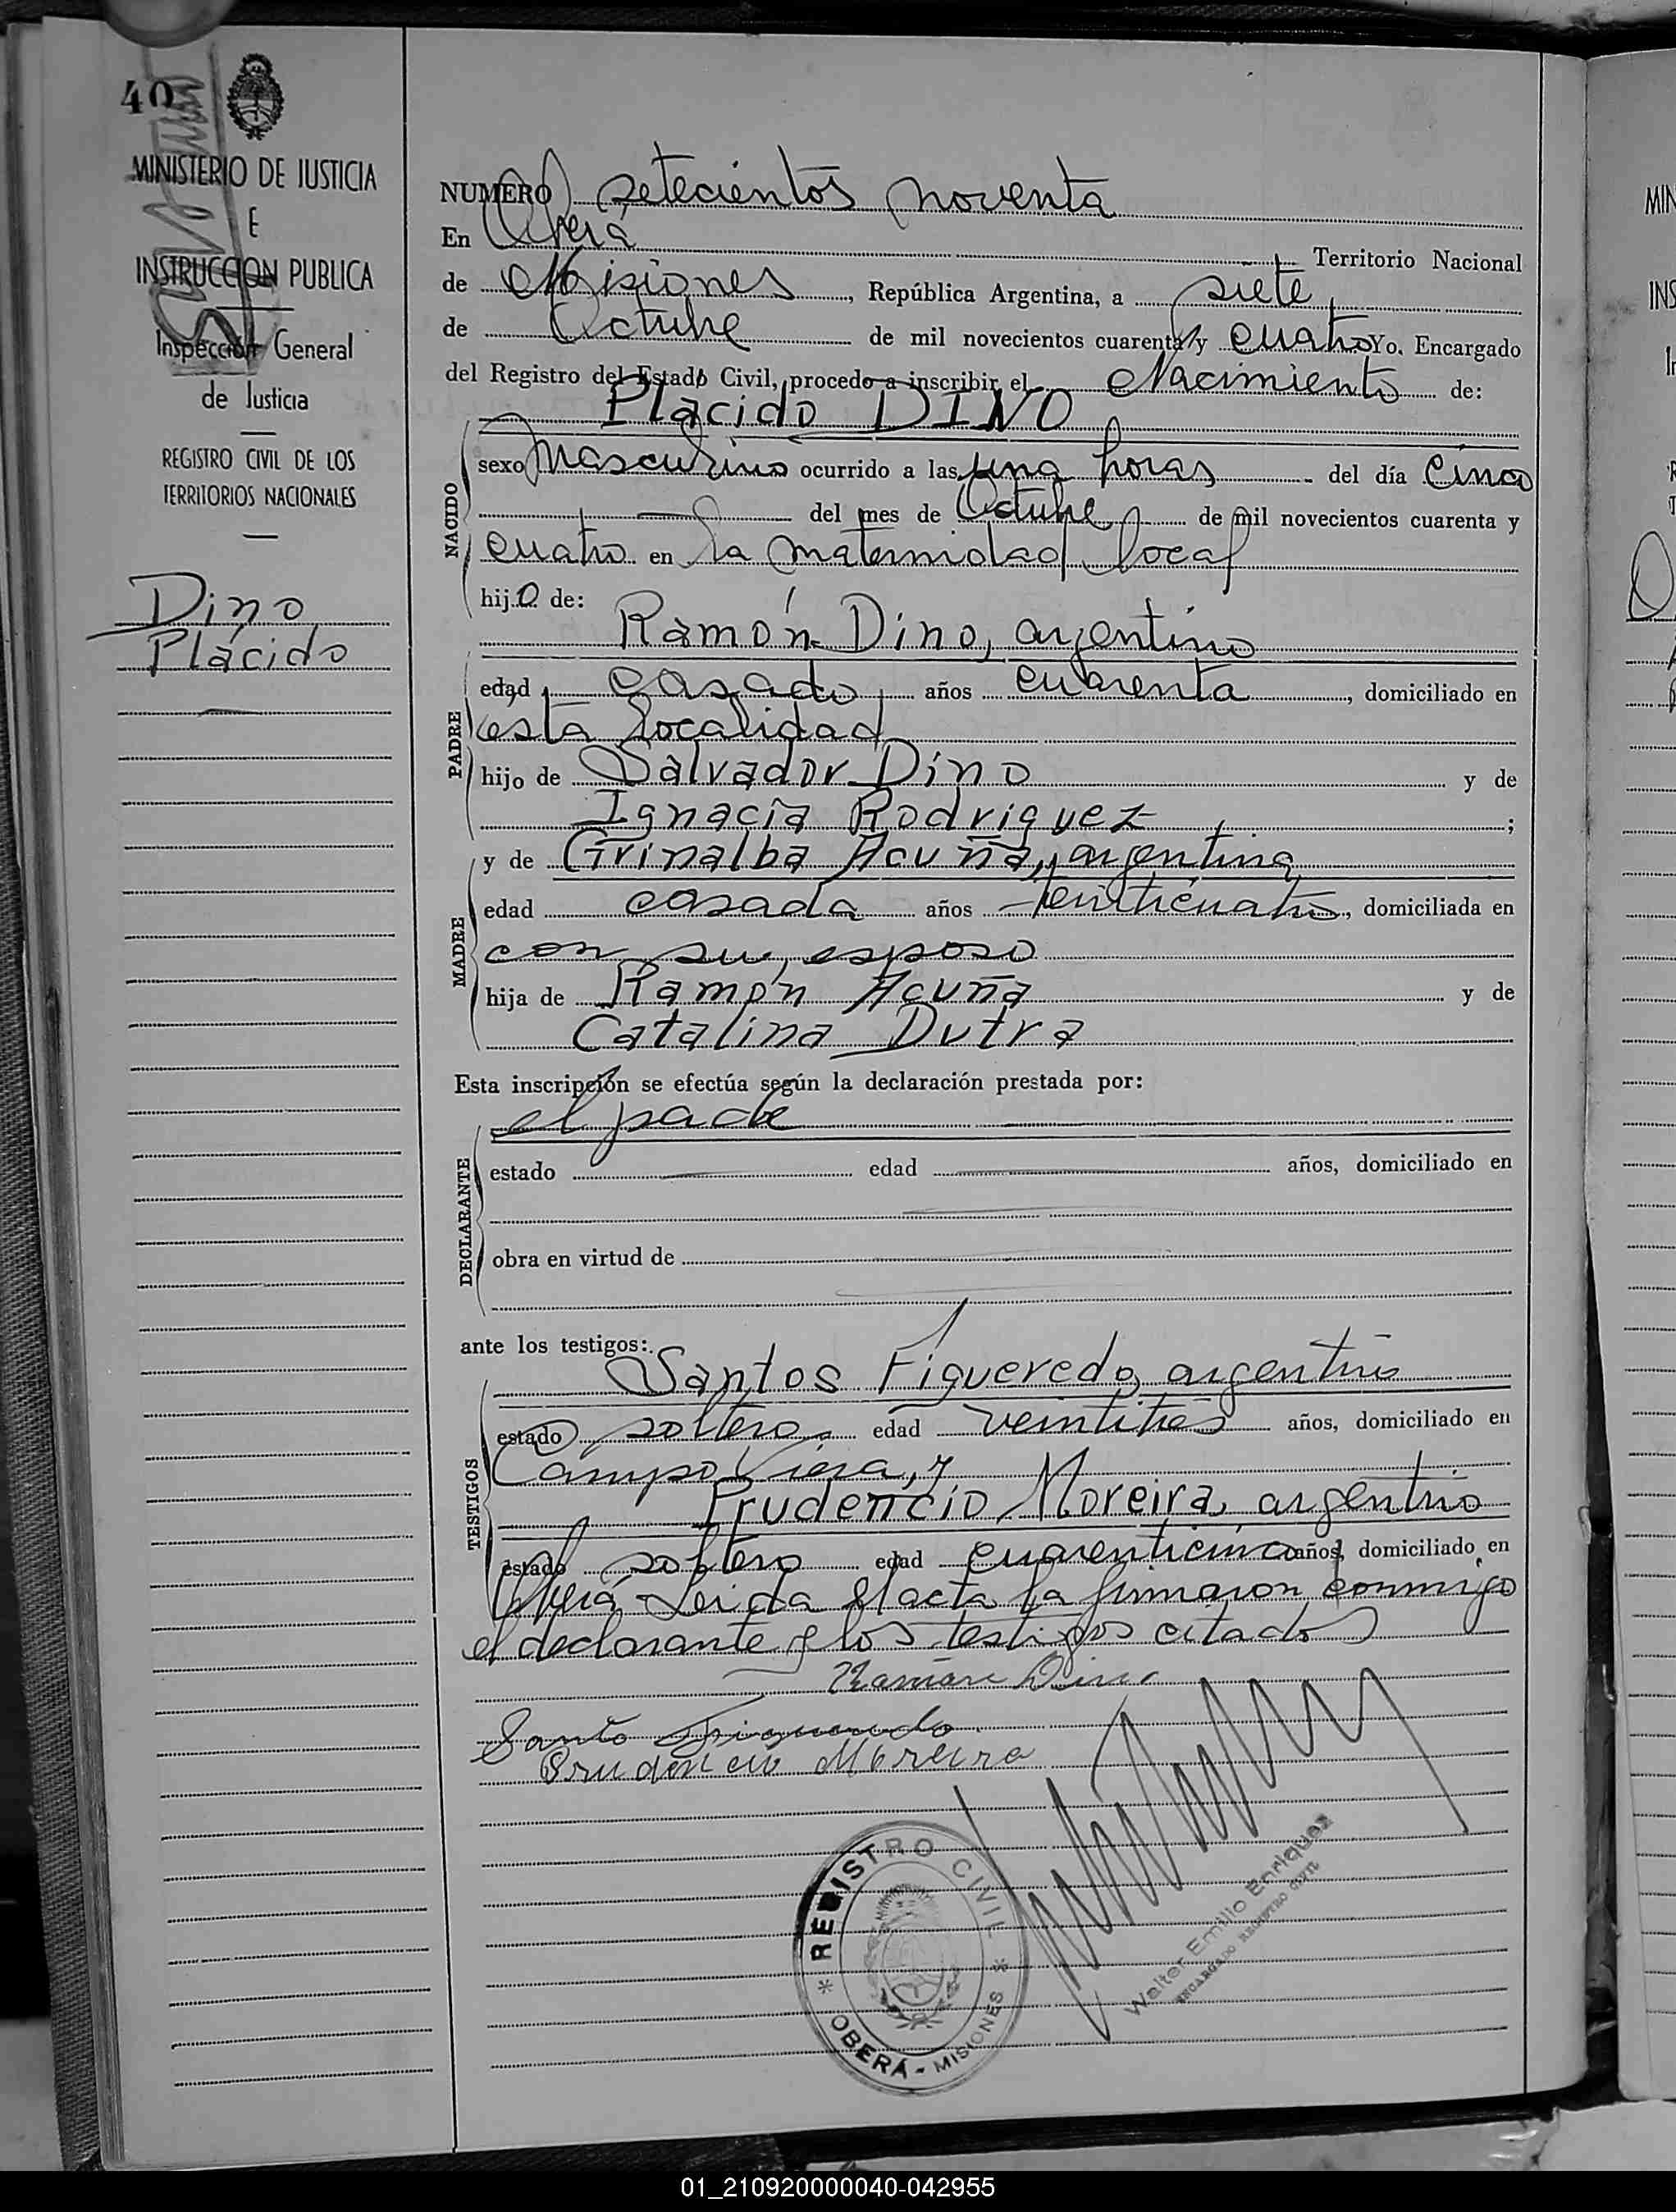 40
MINISTERIO DE JUSTICIA
E
INSTRUCCION PUBLICA
Inspección General
de Justicia
REGISTRO CIVIL DE LOS
TERRITORIOS NACIONALES
Dino
Plácido
NUMERO setecientos noventa
En Oberá Territorio Nacional
de Misiones, República Argentina, a siete
de Octubre de mil novecientos cuarenta y cuatro Yo. Encargado
del Registro del Estado Civil, procedo a inscribir el Nacimiento de:
Plácido DINO
NACIDO
sexo Masculino ocurrido a las una horas del día cinco
del mes de Octubre de mil novecientos cuarenta y
cuatro en la maternidad local
hijo de:
Ramón Dino, argentino
PADRE
edad casado, años cuarenta, domiciliado en
esta localidad
hijo de Salvador Dino y de
Ignacia Rodriguez;
MADRE
y de Grinalba Acuña, argentina
edad casada años veinticuatro, domiciliada en
con su esposo
hija de Ramón Acuña y de
Catalina Dutra
Esta inscripción se efectúa según la declaración prestada por:
el padre
DECLARANTE
estado edad años, domiciliado en
obra en virtud de
ante los testigos:
Santos Figueredo, argentino
TESTIGOS
estado soltero, edad veintitrés años, domiciliado en
Campo Viera, y
Prudencio Moreira, argentino
estado soltero edad cuarenticinco años, domiciliado en
Oberá. Leida el acta la firmaron conmigo
el declarante y los testigos citados
Ramón Dino
Santo Figueredo
Prudencio Moreira
REGISTRO CIVIL
OBERÁ - MISIONES
Walter Emilio Enriquez
ENCARGADO REGISTRO CIVIL
MIN
INS
01_210920000040-042955